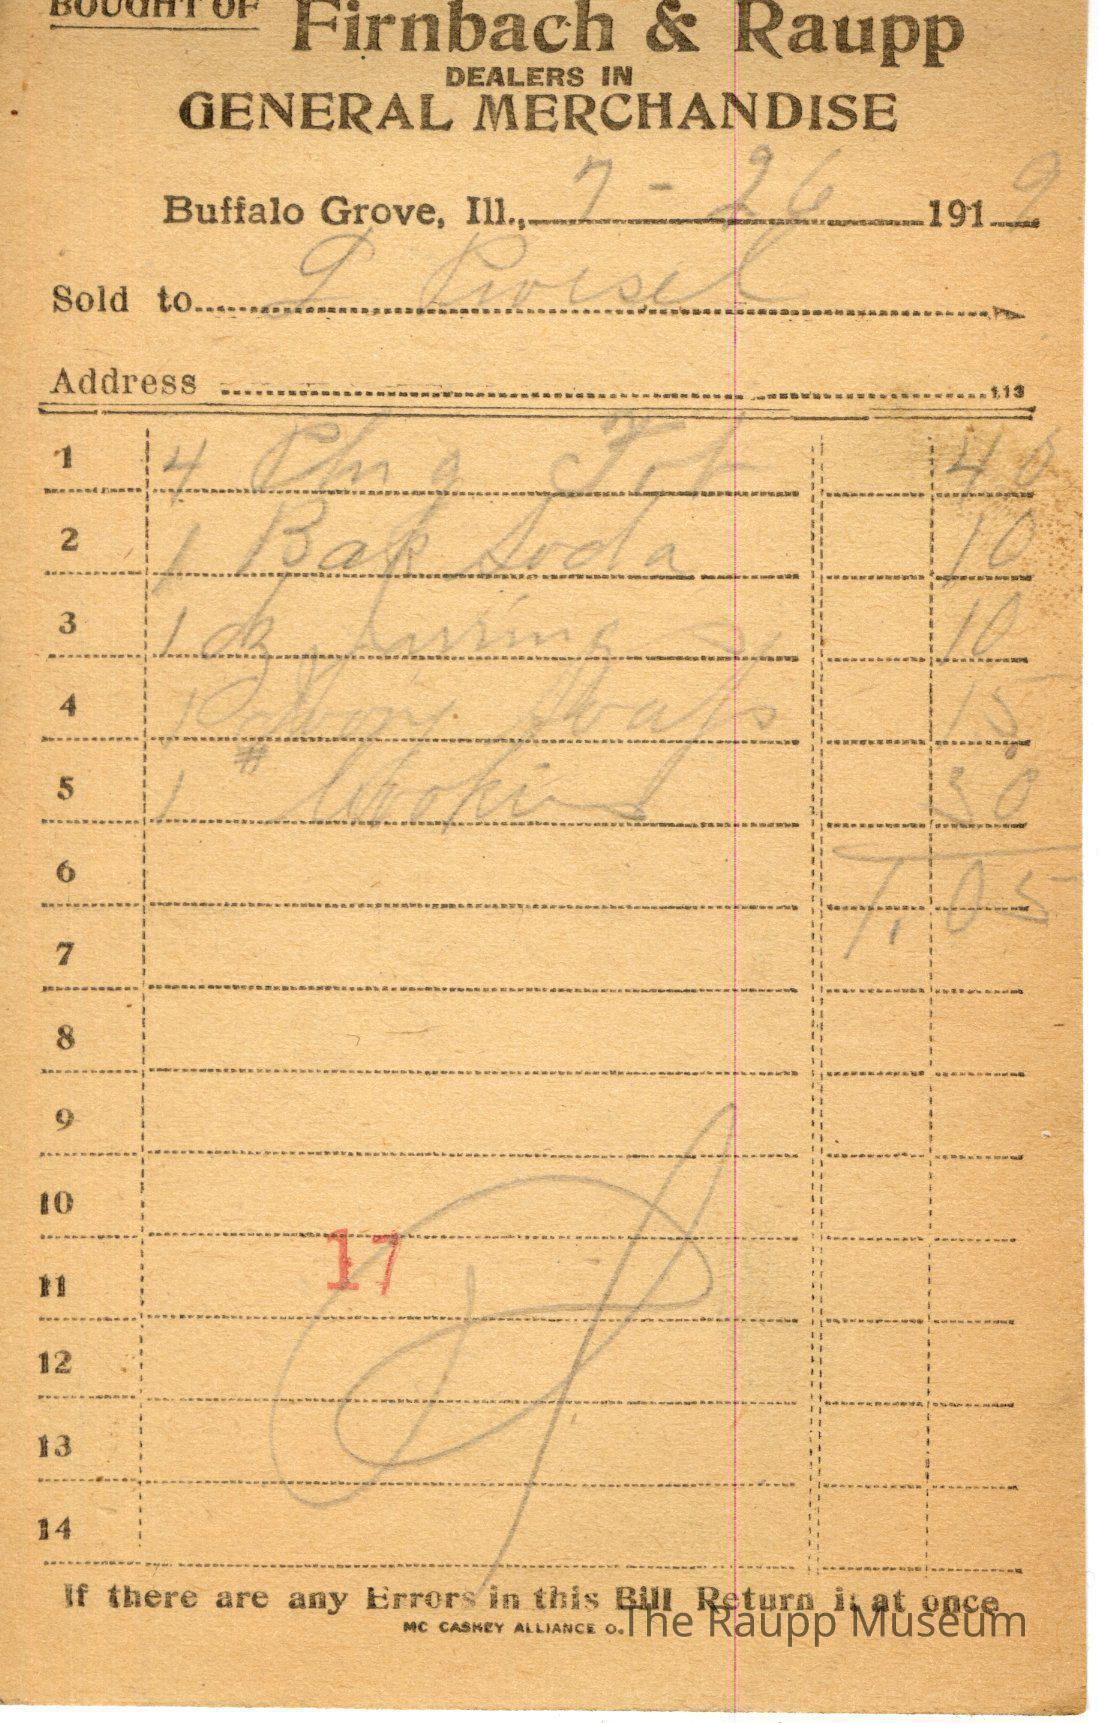 BOUGHT OF Firnbach & Raupp
DEALERS IN
GENERAL MERCHANDISE
Buffalo Grove, Ill., 7 - 26 1919
Sold to
Address 113
1 4 Pkg Tob 40
2 1 Bak Soda 10
3 1 10
4 1 15
5 1 # Cookies 30
6 1.05
7
8
9
10
17
11
12
13
14
If there are any Errors in this Bill Return it at once
MC CASKEY ALLIANCE O.
The Raupp Museum